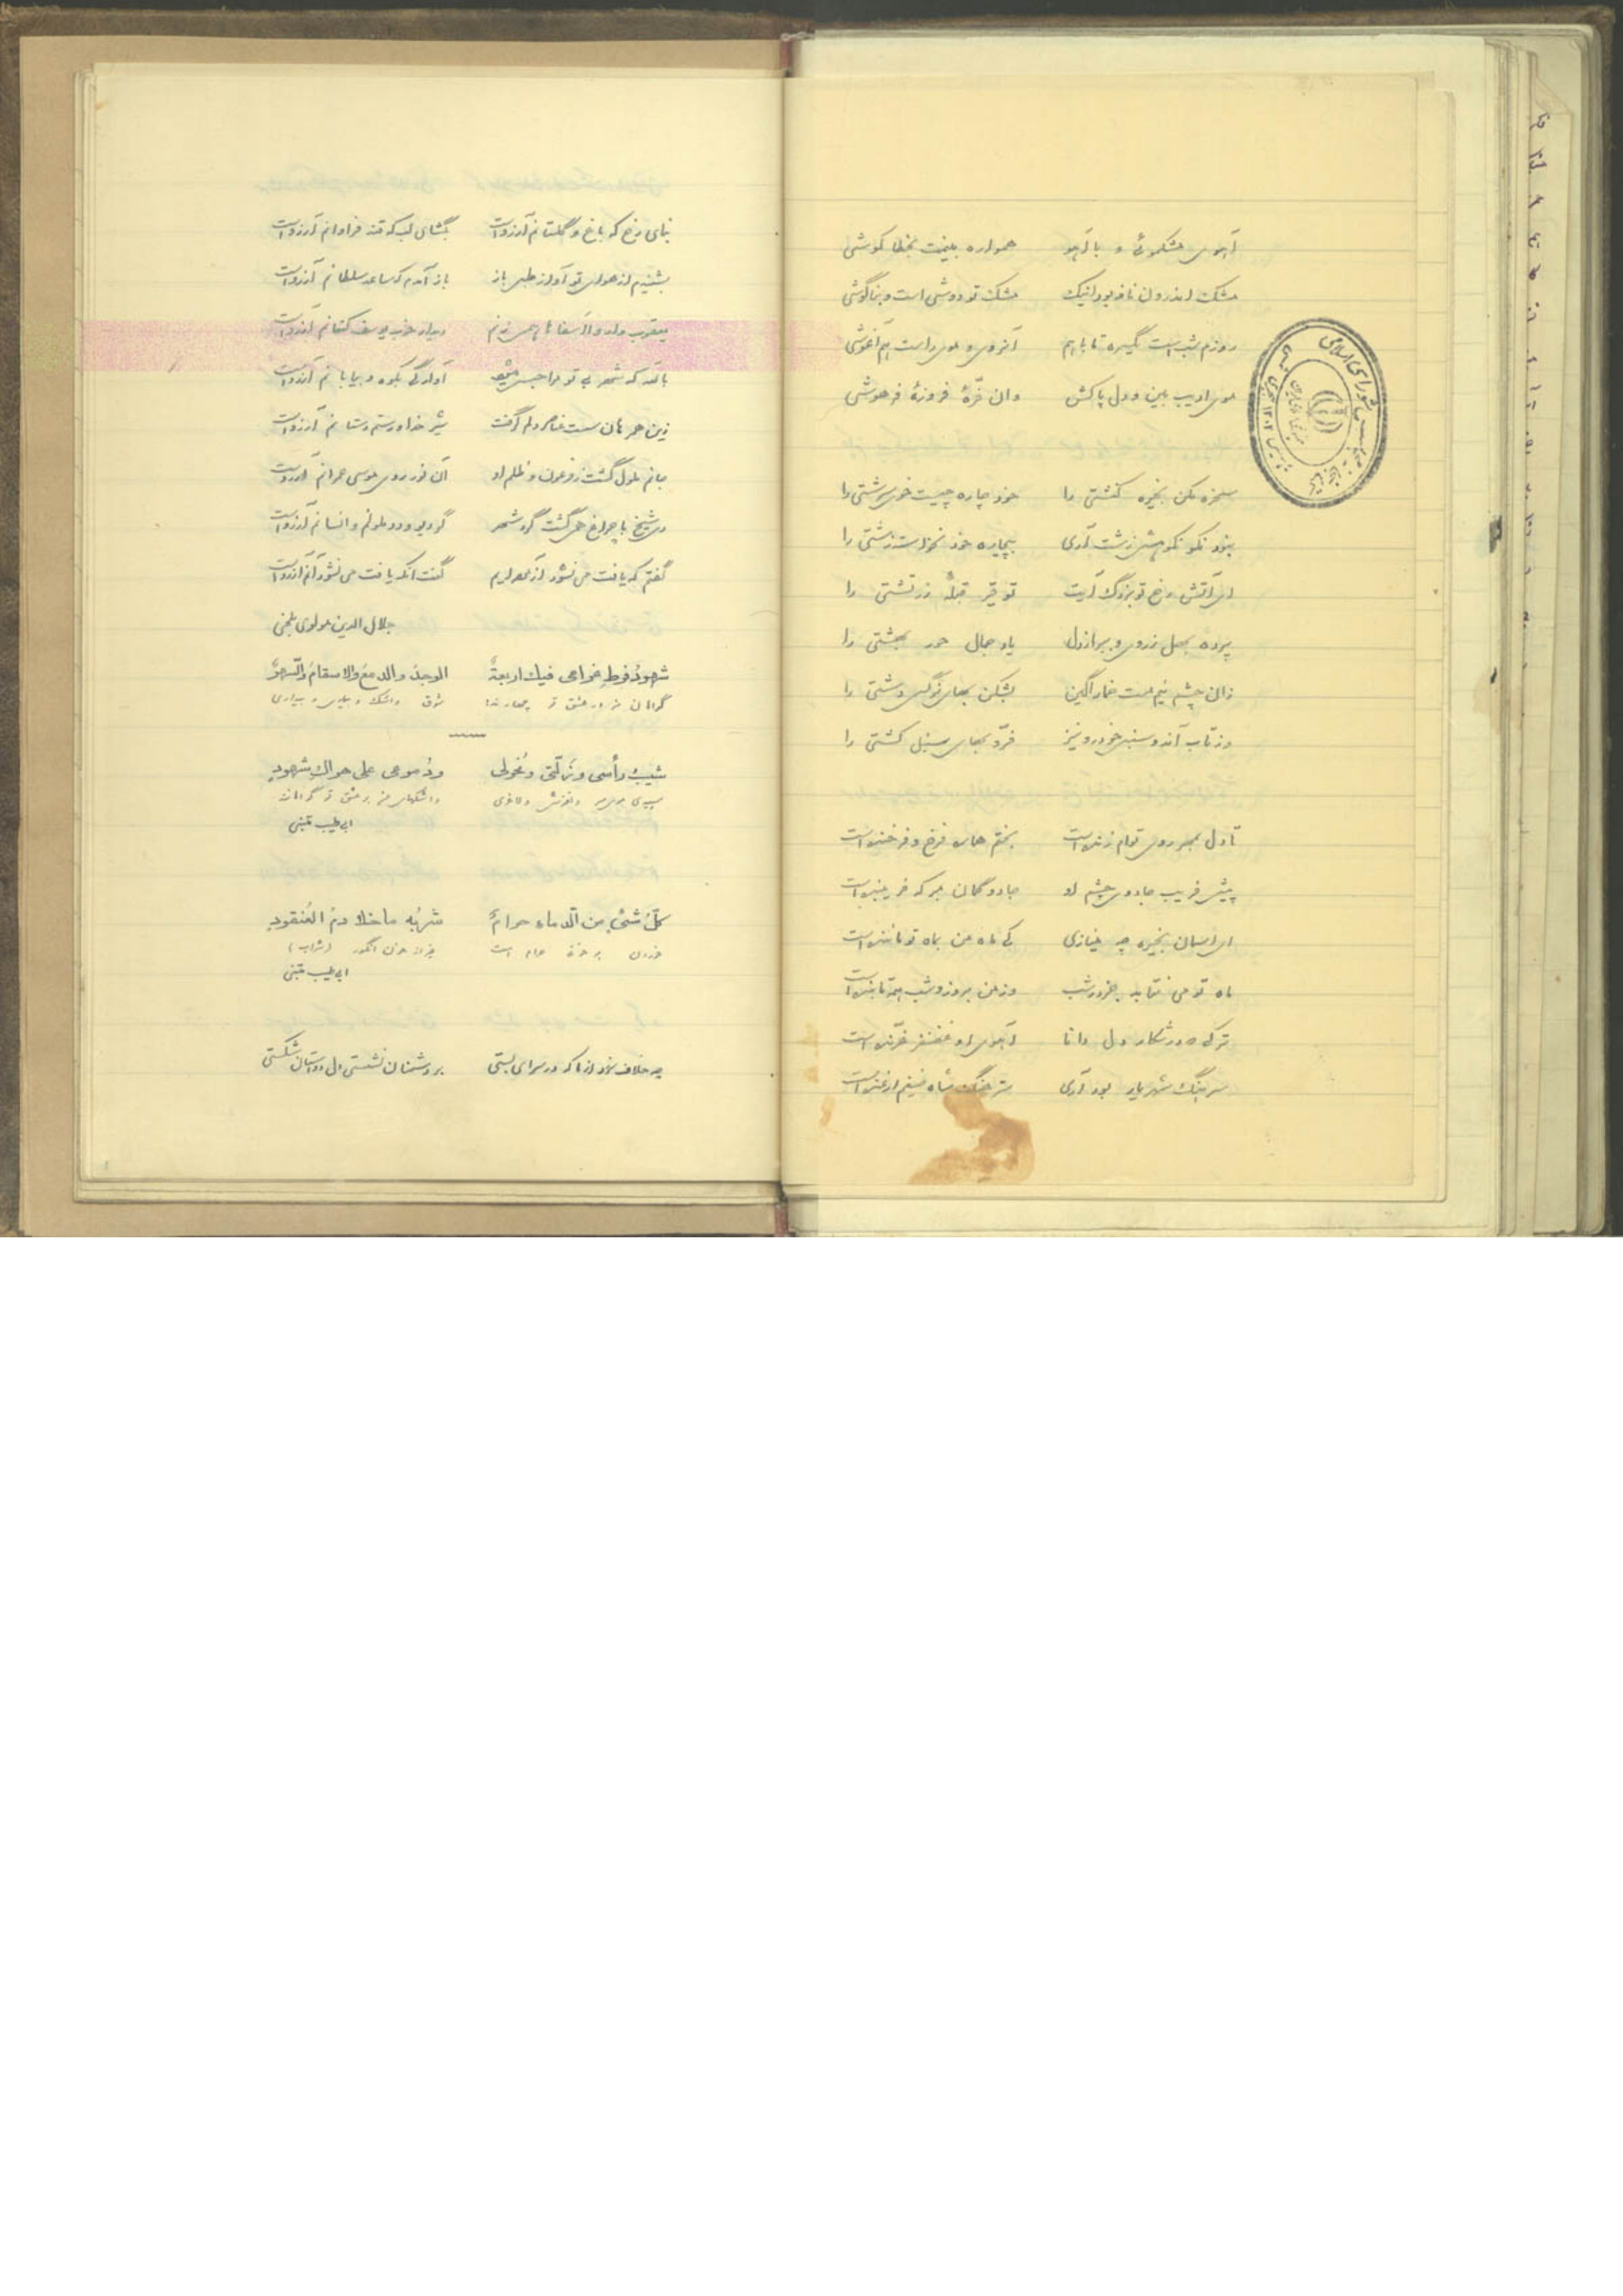 آهوی مشکموئی و با آهو    همواره بینمت بخطا کوشی
مشک اندرون نافه بود لیک    مشک تو دوشی است و بناگوشی
روزم شب است یکسره تا با هم    آنروی و موی راست هم آغوشی
موی ادیب بین و دل پاکش    وان فرّهٔ فروزهٔ فرهوشی
سخره مکن بخیره کنشتی را    خود چاره چیست خوی سرشتی را
نبود نکو نکوهش زشت آری    بیچاره خود نخواست زشتی را
ای آتش رخ تو بزرگ آیت    توقیر قبلهٔ زرتشتی را
پرده بهل ز روی و ببر از دل    یاد جمال حور بهشتی را
زان چشم نیم مست خمارآگین    بشکن بهای نرگس دشتی را
وز تاب آندو سنبل خودرو نیز    فرّ و بهای سنبل کشتی را
تا دل بمهر روی توام زنده است    بختم همای فرخ و فرخنده است
پیش فریب جادوی چشم او    جادو گمان مبر که فریبنده است
ای آسمان بخیره چه مینازی    کی ماه من بماه تو ماننده است
ماه تو می نتابد جز در شب    وز من بروز و شب همه تابنده است
ترکی که در شکار دل دانا    آهوی او غضنفر غرّنده است
سرهنگ شهریار بود آری
بنمای رخ که باغ و گلستانم آرزوست    بگشای لب که قند فراوانم آرزوست
بشنیدم از هوای تو آواز طبل باز    باز آمدم که ساعد سلطانم آرزوست
یعقوب وار وا اسفاها همی زنم    دیدار خوب یوسف کنعانم آرزوست
بالله که شهر بی تو مرا حبس میشود    آوارگی بکوه و بیابانم آرزوست
زین همرهان سست عناصر دلم گرفت    شیر خدا و رستم دستانم آرزوست
جانم ملول گشت ز فرعون و ظلم او    آن نور روی موسی عمرانم آرزوست
دی شیخ با چراغ همی گشت گرد شهر    کز دیو و دد ملولم و انسانم آرزوست
گفتم که یافت می نشود آزموده‌ایم    گفت آنکه یافت می نشود آنم آرزوست
جلال الدین مولوی بلخی
شهودُ فرطِ غرامی فیك اربعةٌ    الوجدُ والدمعُ والاسقامُ والسَّهرُ
گواهان من در عشق تو چهارند:    شوق و اشک و بیماری و بیداری
شیبُ رأسی وذلّتی ونُحولی    ودُموعی علی هواكَ شهودی
سپیدی موی سر و لغزش و لاغری    و اشکهای من بر عشق تو گواهانند
ابی طیب متنبی
کلُّ شئیٍ من الدماءِ حرامٌ    شربُه ما خلا دمُ العُنقودِ
خوردن هر خونی حرام است    بغیر از خون انگور (شراب)
ابی طیب متنبی
چه خلاف سر زد از ما که در سرای بستی    بر دشمنان نشستی دل دوستان شکستی